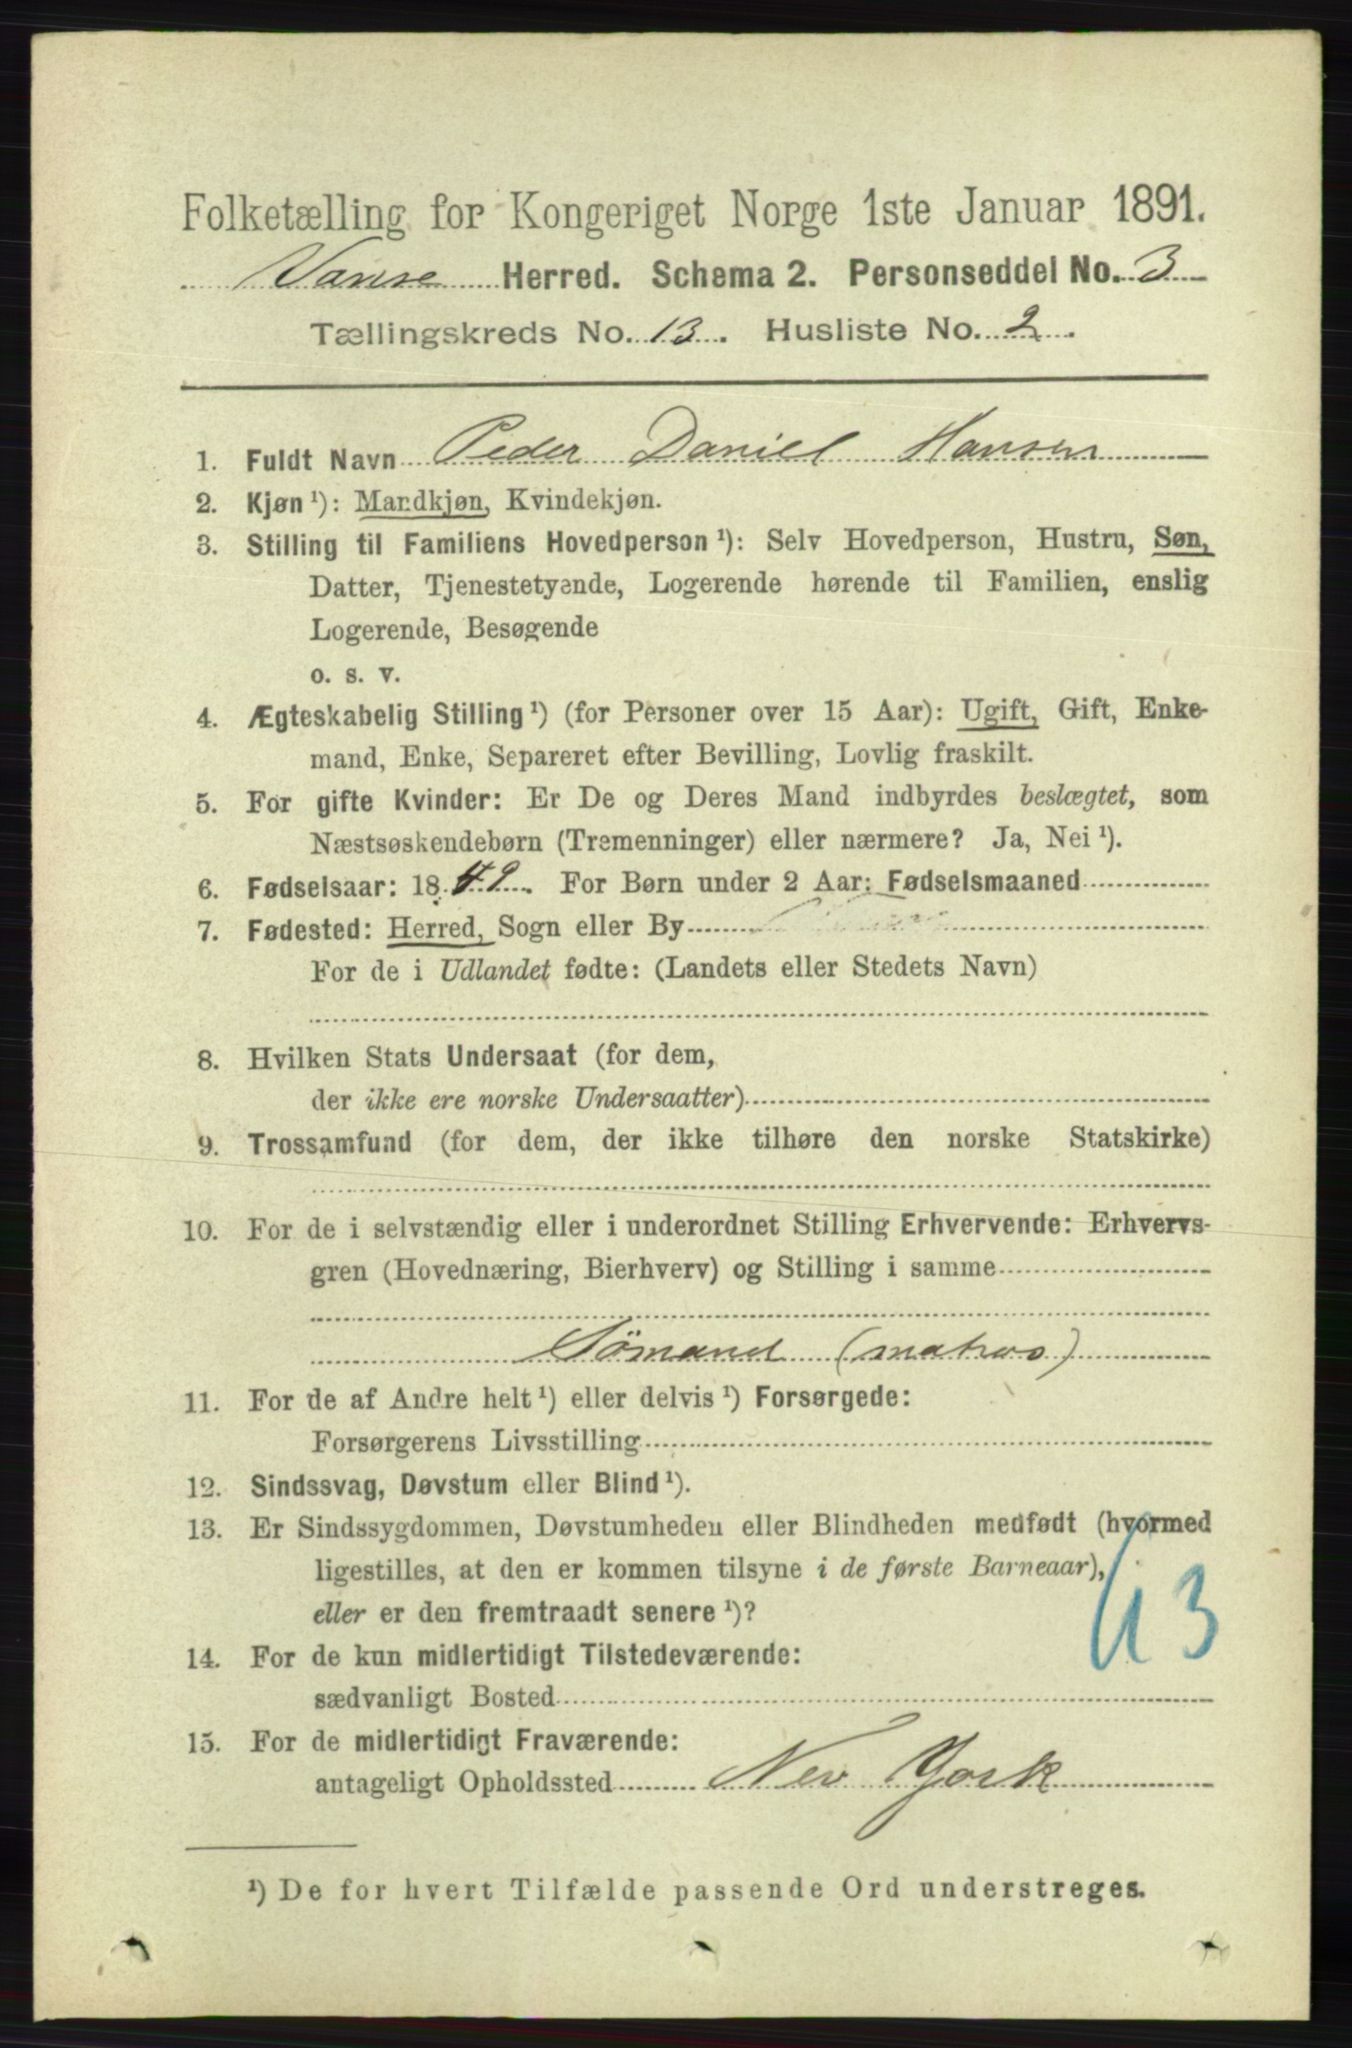 Folketælling for Kongeriget Norge 1ste Januar 1891.
Vanse Herred. Schema 2. Personseddel No. 3
Tællingskreds No. 13. Husliste No. 2.
1. Fuldt Navn Peder Daniel Hansen
2. Kjøn ¹): Mandkjøn, Kvindekjøn.
3. Stilling til Familiens Hovedperson ¹): Selv Hovedperson, Hustru, Søn,
Datter, Tjenestetyende, Logerende hørende til Familien, enslig
Logerende, Besøgende
o. s. v.
4. Ægteskabelig Stilling ¹) (for Personer over 15 Aar): Ugift, Gift, Enke-
mand, Enke, Separeret efter Bevilling, Lovlig fraskilt.
5. For gifte Kvinder: Er De og Deres Mand indbyrdes beslægtet, som
Næstsøskendebørn (Tremenninger) eller nærmere? Ja, Nei ¹).
6. Fødselsaar: 1849. For Børn under 2 Aar: Fødselsmaaned
7. Fødested: Herred, Sogn eller By
For de i Udlandet fødte: (Landets eller Stedets Navn)
8. Hvilken Stats Undersaat (for dem,
der ikke ere norske Undersaatter)
9. Trossamfund (for dem, der ikke tilhøre den norske Statskirke)
10. For de i selvstændig eller i underordnet Stilling Erhvervende: Erhvervs-
gren (Hovednæring, Bierhverv) og Stilling i samme
Sömand (matros)
11. For de af Andre helt ¹) eller delvis ¹) Forsørgede:
Forsørgerens Livsstilling
12. Sindssvag, Døvstum eller Blind ¹).
13. Er Sindssygdommen, Døvstumheden eller Blindheden medfødt (hvormed
ligestilles, at den er kommen tilsyne i de første Barneaar),
eller er den fremtraadt senere ¹)?
14. For de kun midlertidigt Tilstedeværende:
sædvanligt Bosted
15. For de midlertidigt Fraværende:
antageligt Opholdssted New York
¹) De for hvert Tilfælde passende Ord understreges.